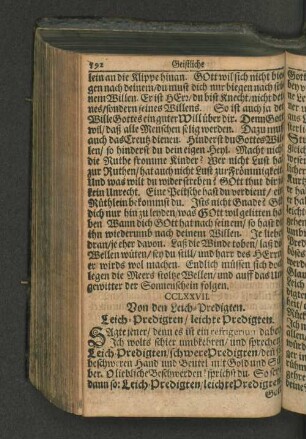 592 Geistliche
lein an die Klippe hinan. GOtt wil sich nicht bie-
gen nach deinem/du must dich nur biegen nach sei-
nem Willen. Er ist HErr/du bist Knecht/nicht dei-
nes/sondern seines Willens. So ist auch ja der
Wille Gottes ein guter Will über dir. Denn Gott
wil/daß alle Menschen selig werden. Dazu muß
auch das Creutz dienen. Hinderst du Gottes Wil-
len/so hinderst du dein eigen Heyl. Macht nicht
die Ruthe fromme Kinder? Wer nicht Lust hat
zur Ruthen/hat auch nicht Lust zur Frömmigkeit.
Und was wilt du widerstreben? GOtt thut dir
kein Unrecht. Eine Petsche hast du verdient/ein
Rüthlein bekommst du. Ists nicht Gnade? Gib
dich nur hin zu leiden/was GOtt wil gelitten ha-
ben. Wann dich GOtt hat nach seinem/so hast du
ihn wiederumb nach deinem Willen. Je lieber
dran/je eher davon. Laß die Winde toben/laß die
Wellen wüten/sey du still/und harr des HErrn/
er wirds wol machen. Endlich müssen sich doch
legen die Meers stoltze Wellen/und auff das Un-
gewitter der Sonnenschein folgen.
CCLXXVII.
Von den Leich-Predigten.
Leich-Predigten/leichte Predigten.
SAgte jener/denn es ist ein refrigerium dabey.
Ich wolts schier umbkehren/und sprechen:
Leich-Predigten/schwere Predigten/denn sie
beschweren Hand und Beutel mit Gold und Sil-
ber. O liebliche Beschwerden/sprichst du. So sey
dann so: Leich-Predigten/leichte Predigten.